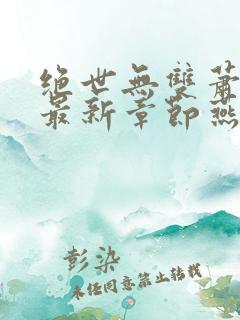 绝世无双萧
最新章节燕
彭染
未经同意禁止转载